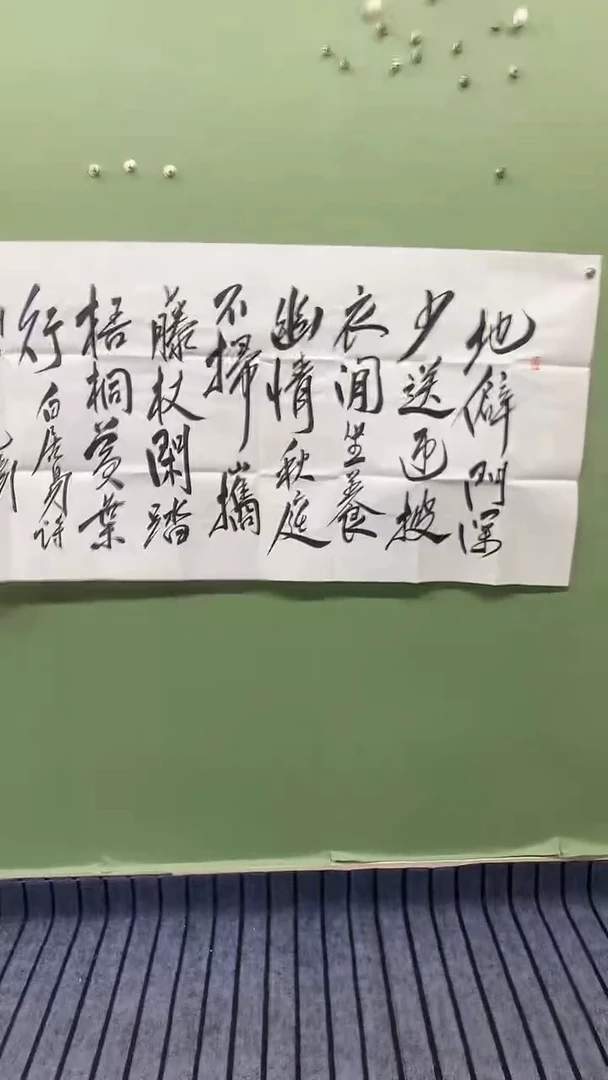 地僻門深
少送迎披
衣閒坐養
幽情秋庭
不掃攜
藤杖閑踏
梧桐黃葉
行 白居易詩